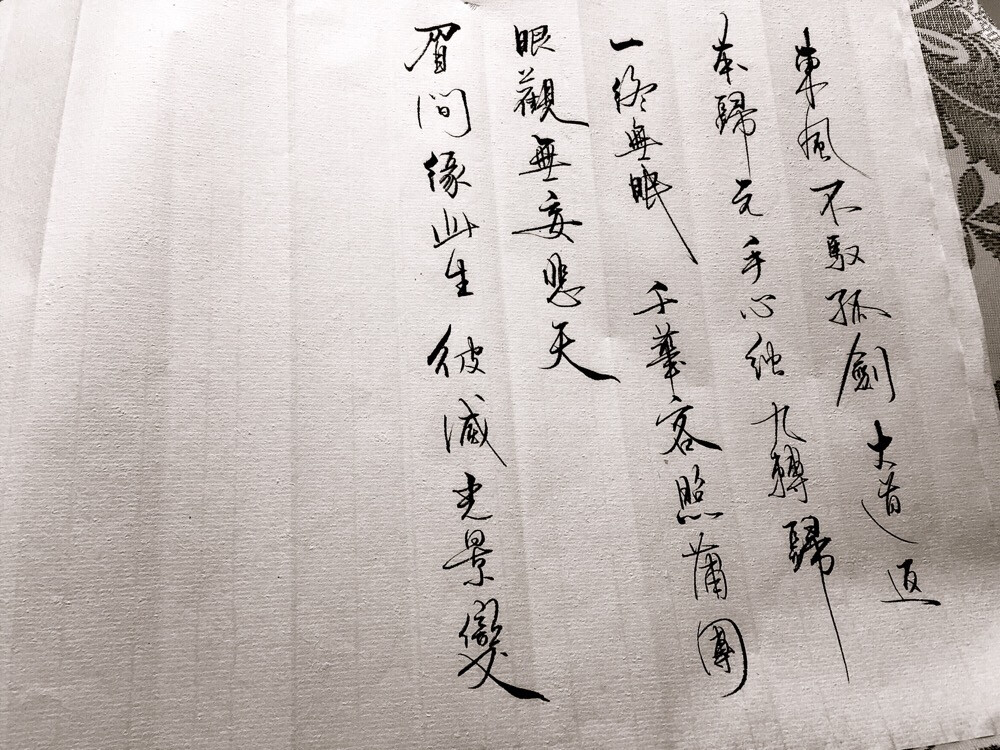 東風不馭孤劍大道返
本歸元手心纯九轉歸
一終無眠千華客照蒲團
眼觀無妄悲天
眉間緣此生彼滅光景變